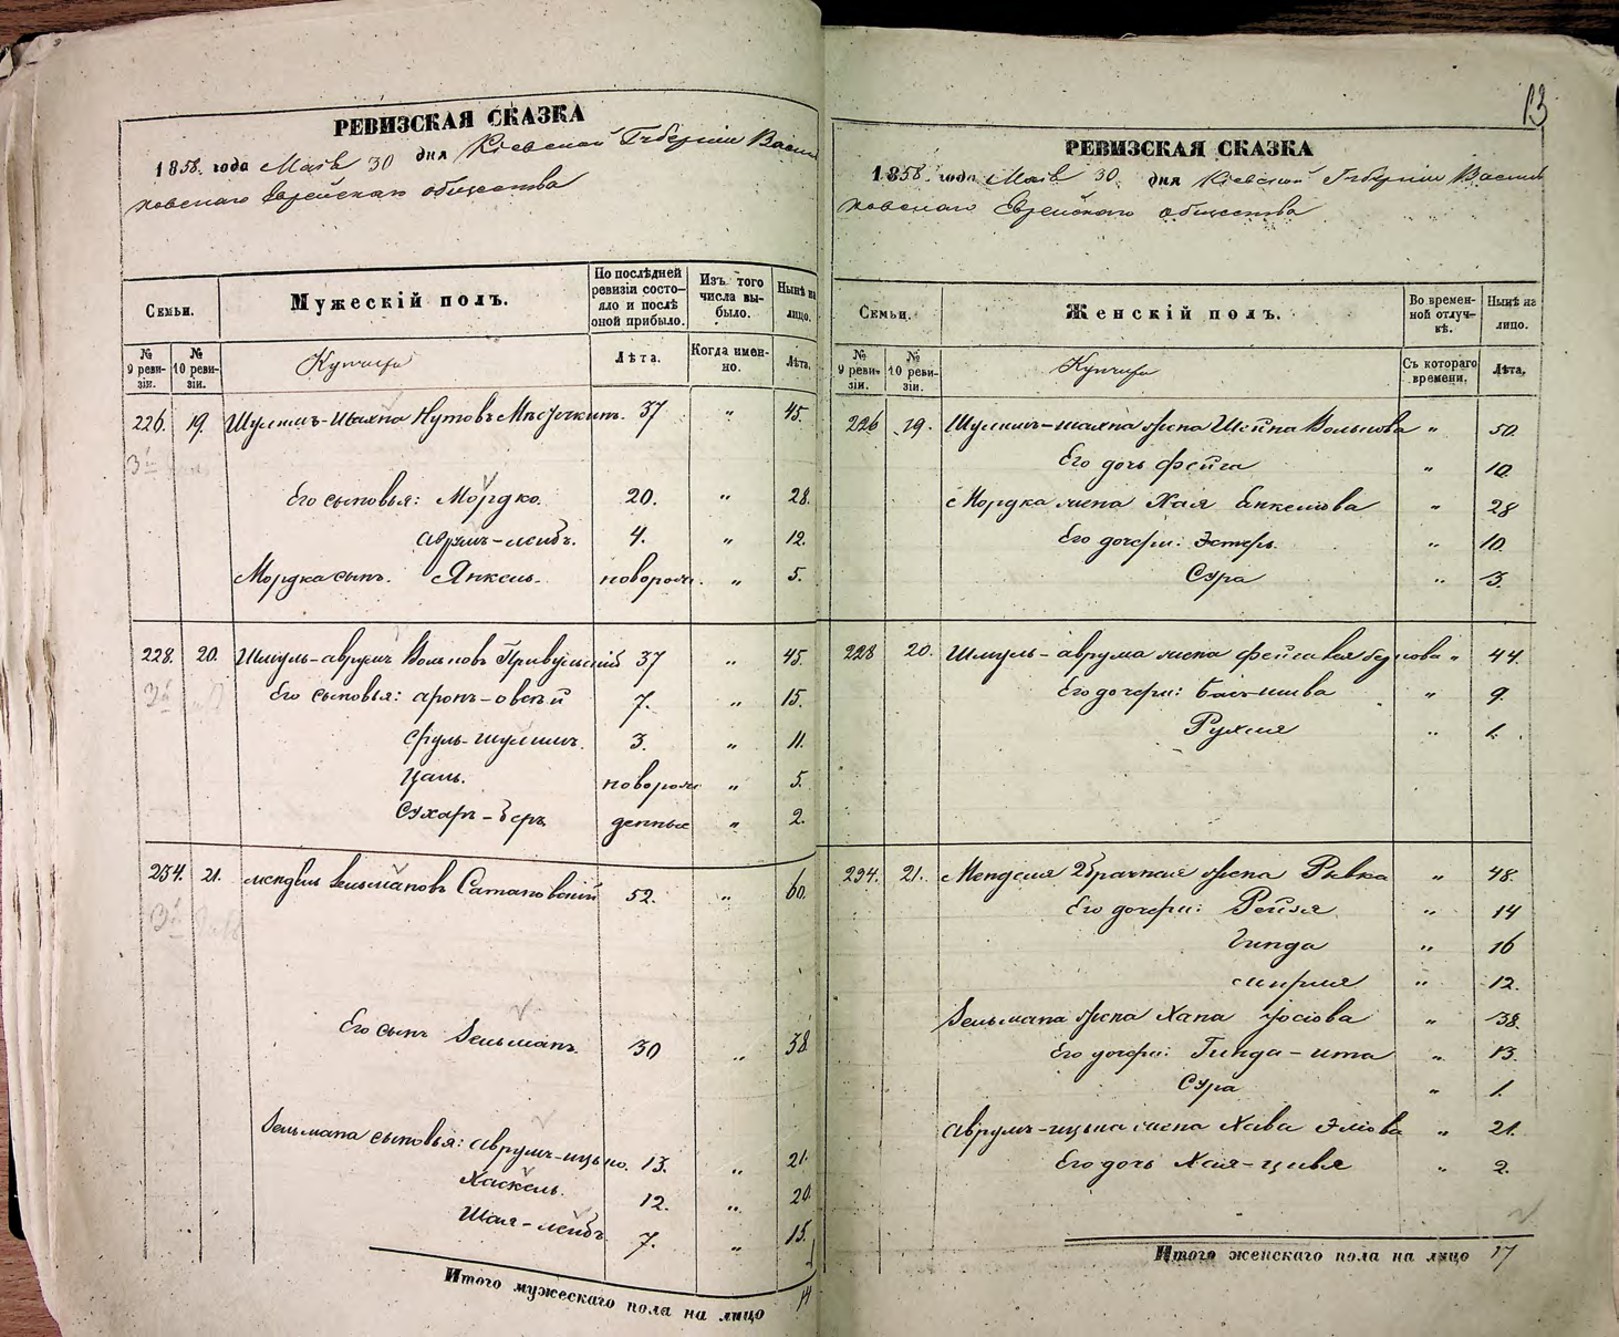 РЕВИЗСКАЯ СКАЗКА
1858. года Маія 30 дня Кіевской Губерніи Васил
ковскаго Еврейскаго общества
Семьи.
Мужескій полъ.
По послѣдней ревизіи состояло и послѣ оной прибыло.
Изъ того числа выбыло.
Нынѣ на лицо.
№ 9 ревизіи.
№ 10 ревизіи.
Лѣта.
Когда именно.
Лѣта.
226. 19. Шулимъ-Шахна Нутовъ 37 " 45.
Его сыновья: Мордко. 20. " 28.
Аврумъ-лейбъ. 4. " 12.
Мордка сынъ. Янкель. новорож. " 5.
228. 20. Шмуль-аврумъ Вольковъ 37 " 45.
Его сыновья: аронъ-овсѣй 7. " 15.
Сруль-шулимъ. 3. " 11.
Цаль. новорож " 5.
Сухаръ-беръ денные " 2.
234. 21. Мендель Зельмановъ Сатановскій 52. " 60.
Его сынъ Зельманъ. 30 " 38
Зельмана сыновья: аврумъ-ицько. 13. " 21.
Хаскель. 12. " 20
Шая-лейбъ 7. " 15.
Итого мужескаго пола на лицо 14
13
РЕВИЗСКАЯ СКАЗКА
1858. года Маія 30. дня Кіевской Губерніи Васил
ковскаго Еврейскаго общества
Семьи.
Женскій полъ.
Во временной отлучкѣ.
Нынѣ на лицо.
№ 9 ревизіи.
№ 10 ревизіи.
Съ котораго времени.
Лѣта.
226 19. Шулимъ-шахна жена Шейна Волькова " 50.
Его дочь Фейга " 10
Мордка жена Хая Янкелова " 28
Его дочери: Эстеръ. " 10.
Сура " 3.
228 20. Шмуль-аврума жена Фейга " 44.
Его дочери: Бася-шива " 9.
Рухля " 1.
234. 21. Менделя 2 брачная жена Рывка " 48.
Его дочери: Рейзя " 14
Гинда " 16
Мирля " 12.
Зельмана жена Хана Іосіова " 38.
Его дочери: Гинда-ита " 13.
Сура " 1.
Аврумъ-ицька жена Хава Эліова " 21.
Его дочь Хая-цивя " 2.
Итого женскаго пола на лицо 17